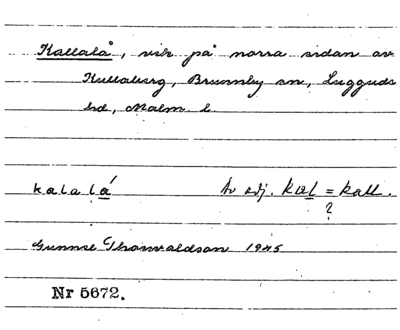 Kallalå, vik på norra sidan av
Kullaberg, Brunnby sn, Luggude
hd, Malm. l.
kalalá Av adj. kal = kall.
?
Gunnar Thorvaldson 1945
Nr 5672.